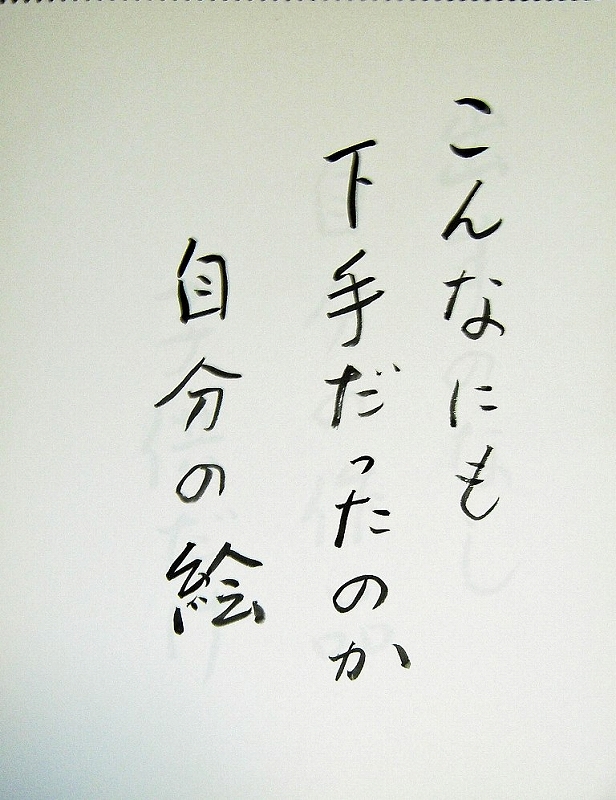 こんなにも
下手だったのか
自分の絵